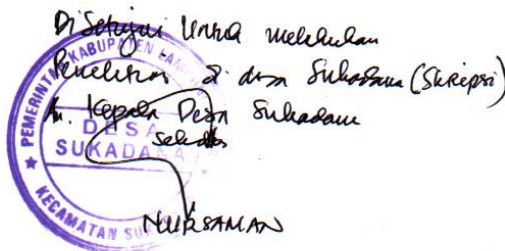 Disetujui Untuk melakukan
Penelitian di desa Sukadana (Skripsi)
An. Kepala Desa Sukadana
Sekdes
PEMERINTAH KABUPATEN LAM
DESA
SUKADANA
KECAMATAN SU
NURSAMAN